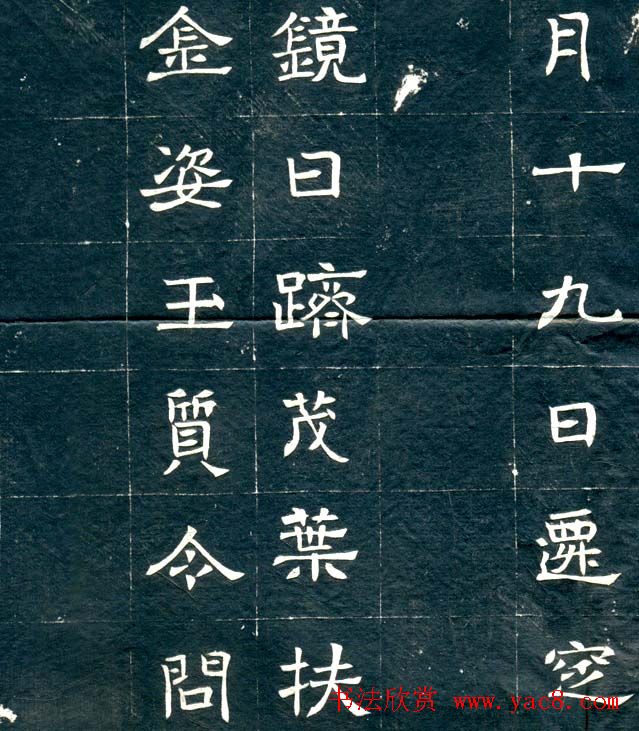 月十九日遷窆
鏡日躋茂葉扶
金姿玉質令問
书法欣赏 www.yac8.com